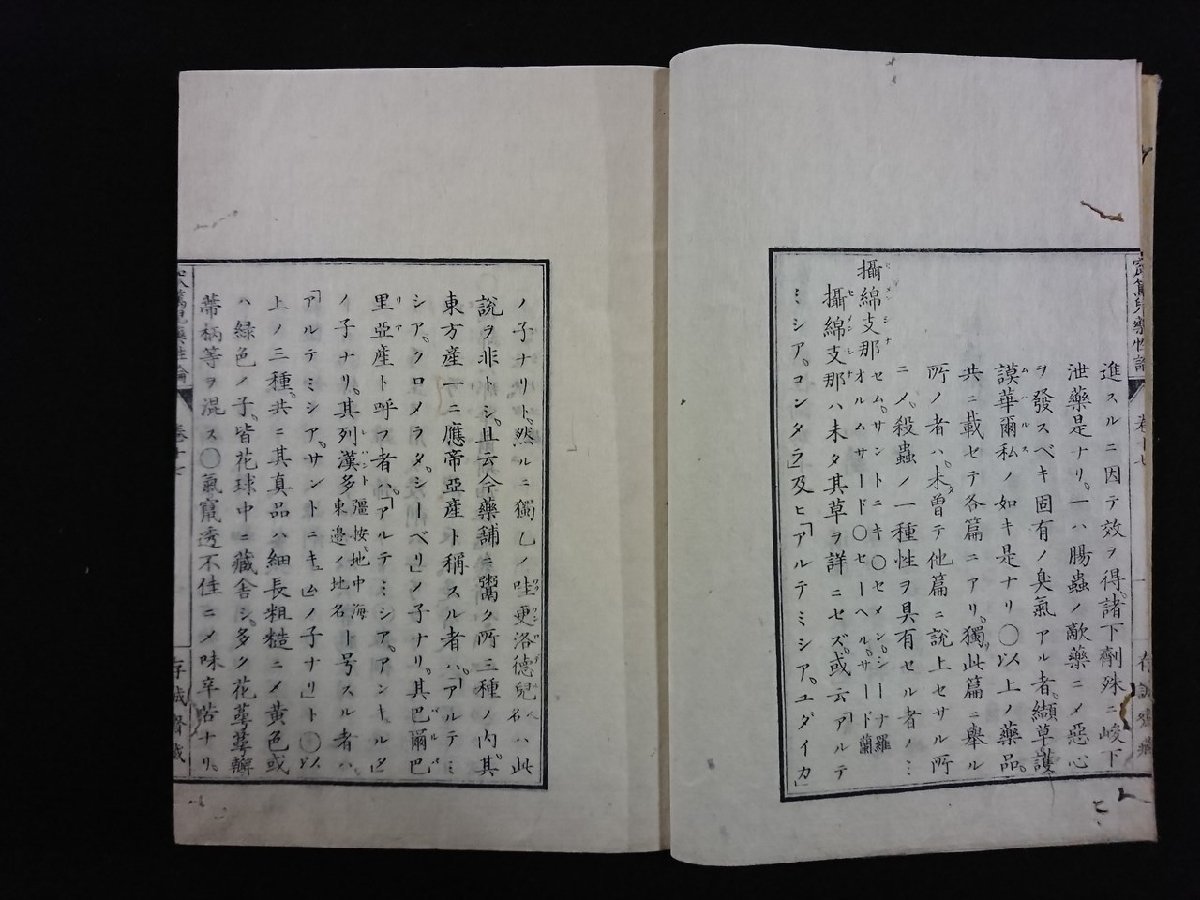 進スルニ因テ效ヲ得。諸下劑殊ニ峻下
泄藥是ナリ。一ハ腸蟲ノ敵藥ニメ惡心
ヲ發スベキ固有ノ臭氣アル者。纈草護
謨華爾私ノ如キ是ナリ〇以上ノ藥品。
共ニ載セテ各篇ニアリ。獨此篇ニ擧ル
所ノ者ハ。未曾テ他篇ニ説上セサル所
ニノ。殺蟲ノ一種性ヲ具有セル者ノミ
攝綿支那 セム。サントニキ〇セメン。シーナ羅
オルムサード〇セーヘル。サード蘭
攝綿支那ハ未タ其草ヲ詳ニセズ。或云「アルテ
ミシア。コンタラ」及ヒ「アルテミシア。ユダイカ」
ノ子ナリト。然ルニ獨乙ノ哇更洛德兒ハ此
説ヲ非トシ。且云今藥舗ニ鬻ク所三種ノ内。其
東方産一ニ應帝亞産ト稱スル者ハ。「アルテミ
シア。クロメラタ。シーベリ」ノ子ナリ。其巴爾巴
里亞産ト呼フ者ハ。「アルテミシア。アンキュルタ」
ノ子ナリ。其列漢多 按、地中海東邊ノ地名 ト号スル者ハ。
「アルテミシア。サントニキュム」ノ子ナリ」ト〇以
上ノ三種。共ニ其真品ハ細長粗糙ニメ黄色或
ハ緑色ノ子。皆花球中ニ藏舎シ。多ク花萼萼
蒂柄等ヲ混ス〇氣竄透不佳ニメ味辛苦ナリ。
卷十七
存誠齋藏